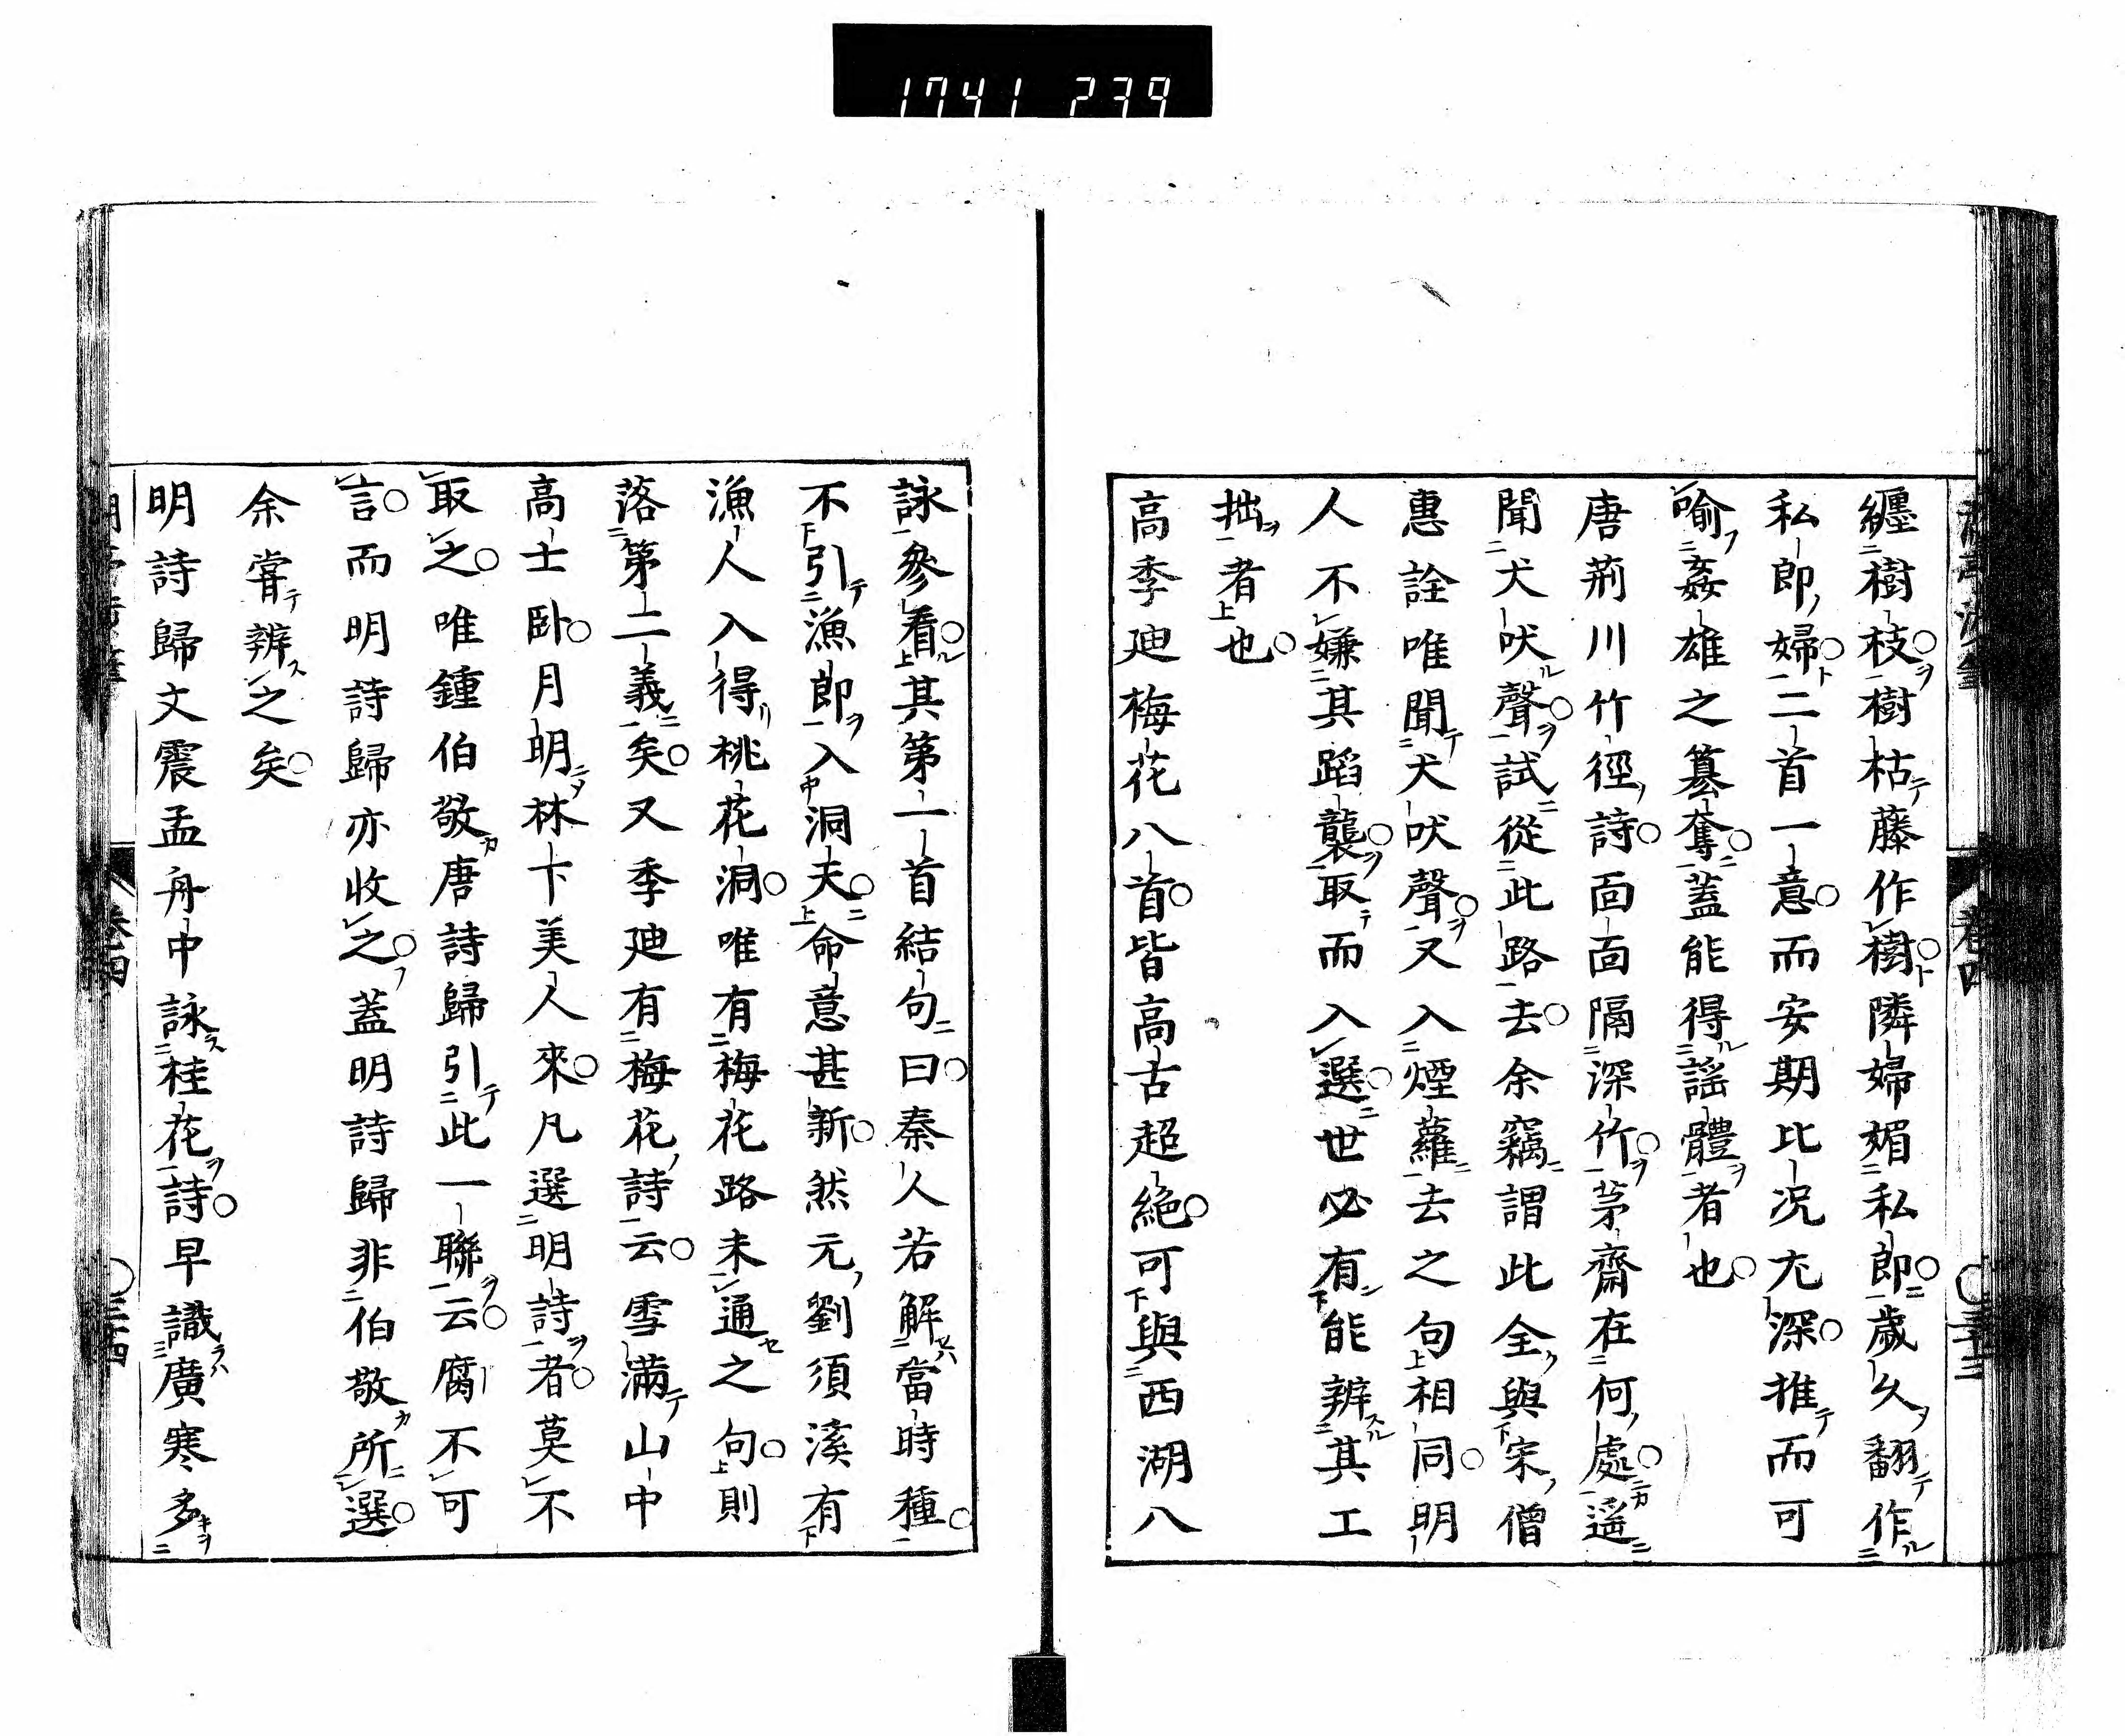 1741 239
纏樹枝樹枯藤作樹隣婦媚私郎歲久翻作
私郎婦二首一意而安期比況尤深推而可
喻姦雄之簒奪蓋能得謠體者也
唐荊川竹徑詩面面隔深竹茅齋在何處遥
聞犬吠聲試從此路去余竊謂此全與宋僧
惠詮唯聞犬吠聲又入煙蘿去之句相同明
人不嫌其蹈襲取而入選世必有能辨其工
拙者也
高季廸梅花八首皆高古超絕可與西湖八
詠參看其第一首結句曰秦人若解當時種
不引漁郎入洞夫命意甚新然元劉須溪有
漁人入得桃花洞唯有梅花路未通之句則
落第二義矣又季廸有梅花詩云雪滿山中
高士臥月明林下美人來凡選明詩者莫不
取之唯鍾伯敬唐詩歸引此一聯云腐不可
言而明詩歸亦收之蓋明詩歸非伯敬所選
余嘗辨之矣
明詩歸文震孟舟中詠桂花詩早識廣寒多
卷四